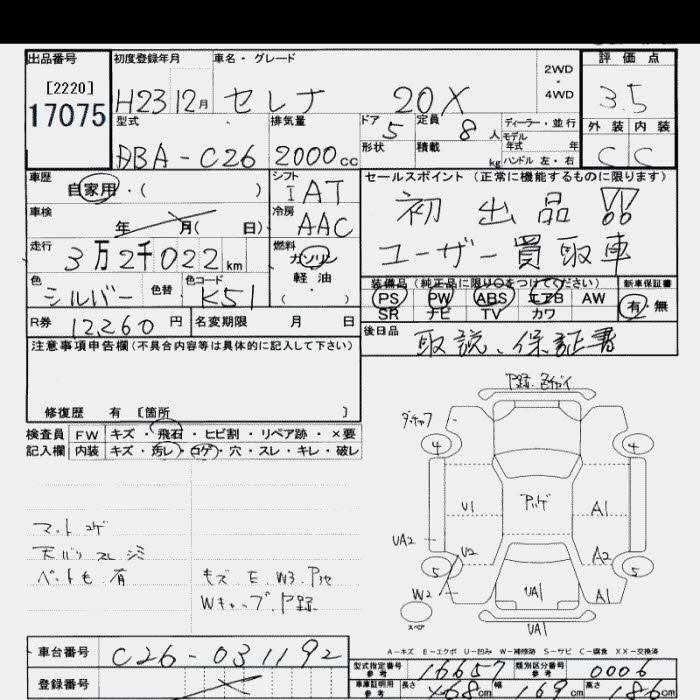 出品番号 初度登録年月 車名・グレード 2WD・4WD 評価点
[2220]
17075 H23 12月 セレナ 20X 3.5
型式 排気量 ドア 定員 ディーラー・並行 外装 内装
5 8人 モデル年式 年
DBA-C26 2000cc 形状 積載 kg ハンドル 左・右 C C
車歴 シフト セールスポイント (正常に機能するものに限ります)
自家用・( ) IAT 初出品!!
車検 年 月( 日) 冷房 AAC
走行 3万2千022km 燃料 ガソリン 軽油 ( ) ユーザー買取車
色 シルバー 色替 色コード K51
装備品 (純正品に限り○をつけてください) 新車保証書
PS PW ABS エアB AW 有・無
SR ナビ TV カワ
R券 12260円 名変期限 月 日
後日品 取説、保証書
注意事項申告欄(不具合内容等は具体的に記入して下さい)
修復歴 有 [箇所 ]
検査員 FW キズ・飛石・ヒビ割・リペア跡・×要
記入欄 内装 キズ・汚レ・コゲ・穴・スレ・キレ・破レ
マットコゲ
天バリスレシミ
ペットも有
キズ E W3
Wキャップ
4 4
U1 A1
UA2 U2 A2
5 5
W2 UA1 A1
スペア UA1
A-キズ E-エクボ U-凹み W-補修跡 S-サビ C-腐食 XX-交換済
車台番号 C26-031192
型式指定番号 参考 16657 類別区分番号 参考 0006
登録番号
車庫証明用 参考 長さ 468cm 幅 169cm 高さ 86cm